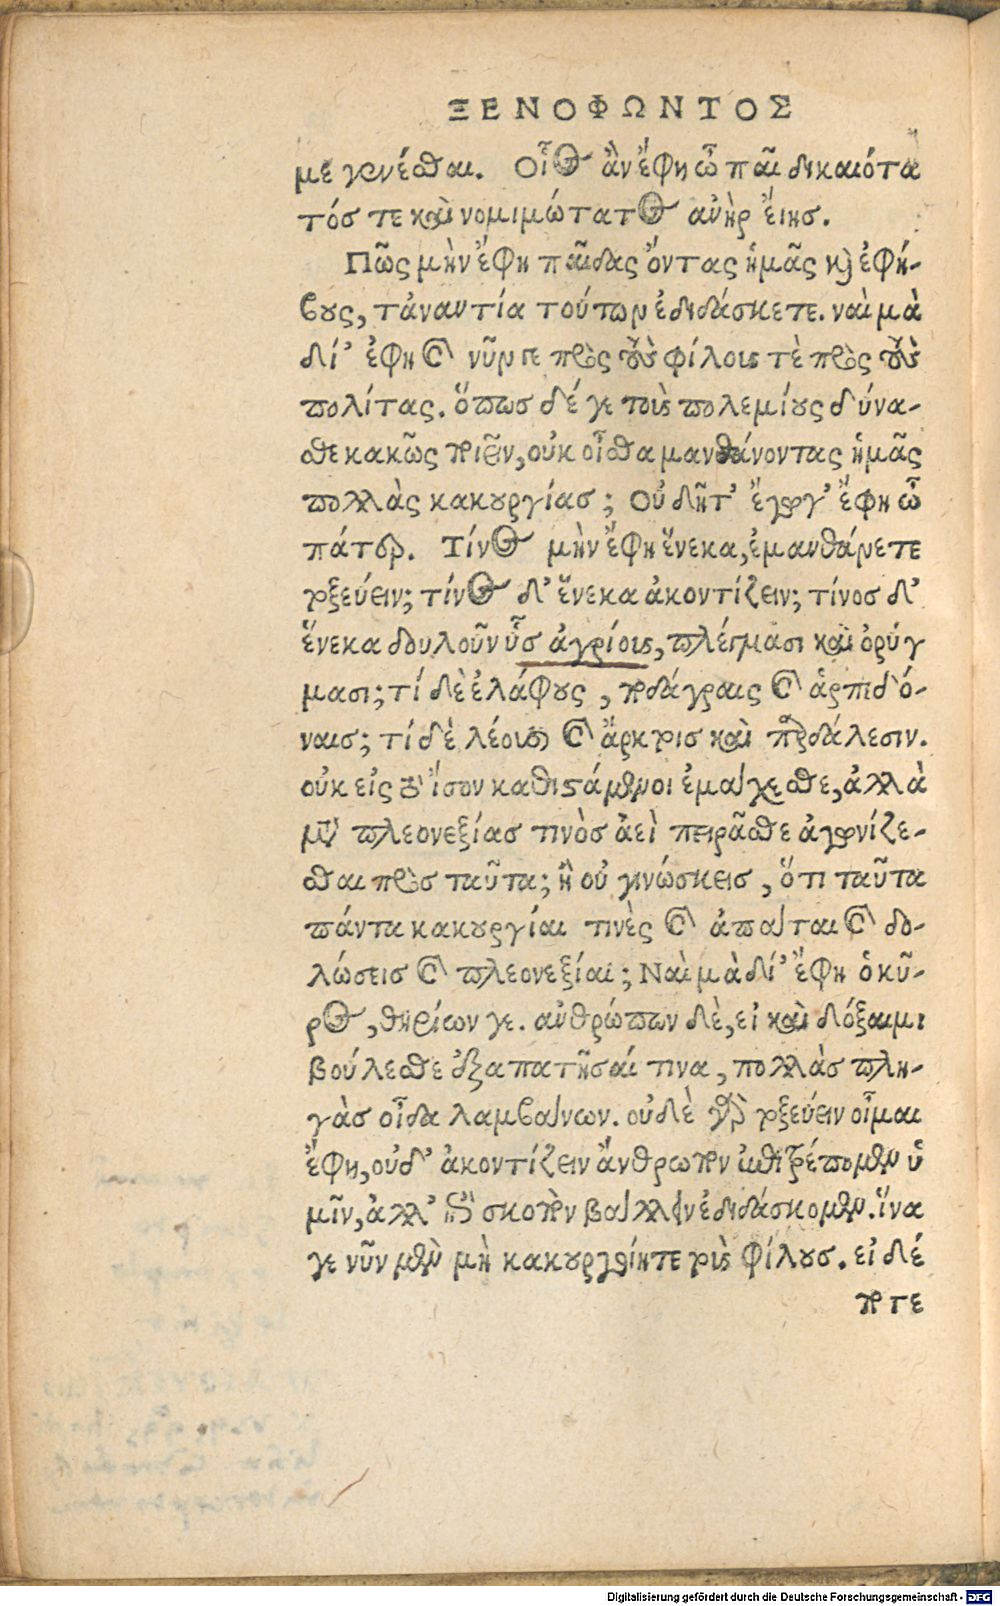 ΞΕΝΟΦΩΝΤΟΣ
με γενέσθαι. Οἷος ἂν ἔφη ὦ παῖ δικαιότα
τός τε καὶ νομιμώτατος ἀνὴρ εἴης.
Πῶς μὴν ἔφη παῖδας ὄντας ἡμᾶς καὶ ἐφή-
βους, τἀναντία τούτων ἐδιδάσκετε. ναὶ μὰ
δί' ἐφη καὶ νῦν γε πρὸς τοὺς φίλους τὲ πρὸς τοὺς
πολίτας. ὅπως δέ γε τοὺς πολεμίους δύνα-
σθε κακῶς ποιεῖν, οὐκ οἶσθα μανθάνοντας ἡμᾶς
πολλὰς κακουργίας; Οὐ δῆτ' ἔγωγ' ἔφη ὦ
πάτερ. Τίνος μὴν ἔφη ἕνεκα, ἐμανθάνετε
τοξεύειν; τίνος δ' ἕνεκα ἀκοντίζειν; τίνος δ'
ἕνεκα δουλοῦν ὗς ἀγρίους, πλέγμασι καὶ ὀρύγ
μασι; τί δὲ ἐλάφους, ποδάγραις καὶ ἁρπεδό-
ναις; τί δὲ λέουσι καὶ ἄρκτοις καὶ παρδάλεσιν.
οὐκ εἰς τὸ ἴσον καθιστάμενοι ἐμάχεσθε, ἀλλὰ
μετὰ πλεονεξίας τινὸς ἀεὶ πειρᾶσθε ἀγωνίζε-
σθαι πρὸς ταῦτα; ἢ οὐ γινώσκεις, ὅτι ταῦτα
πάντα κακουργίαι τινὲς καὶ ἀπάται καὶ δο-
λώσεις καὶ πλεονεξίαι; Ναὶ μὰ δί' ἔφη ὁ κῦ-
ρος, θηρίων γε. ἀνθρώπων δὲ, εἰ καὶ δόξαιμι
βούλεσθε ἐξαπατῆσαί τινα, πολλὰς πλη-
γὰς οἶδα λαμβάνων. οὐδὲ γὰρ τοξεύειν οἶμαι
ἔφη, οὐδ' ἀκοντίζειν ἄνθρωπον ἐπιτρέπομεν ὑ
μῖν, ἀλλ' ἐπὶ σκοπὸν βάλλειν ἐδιδάσκομεν. ἵνα
γε νῦν μὲν μὴ κακουργοίητε τοὺς φίλους. εἰ δέ
ποτε
Digitalisierung gefördert durch die Deutsche Forschungsgemeinschaft - DFG